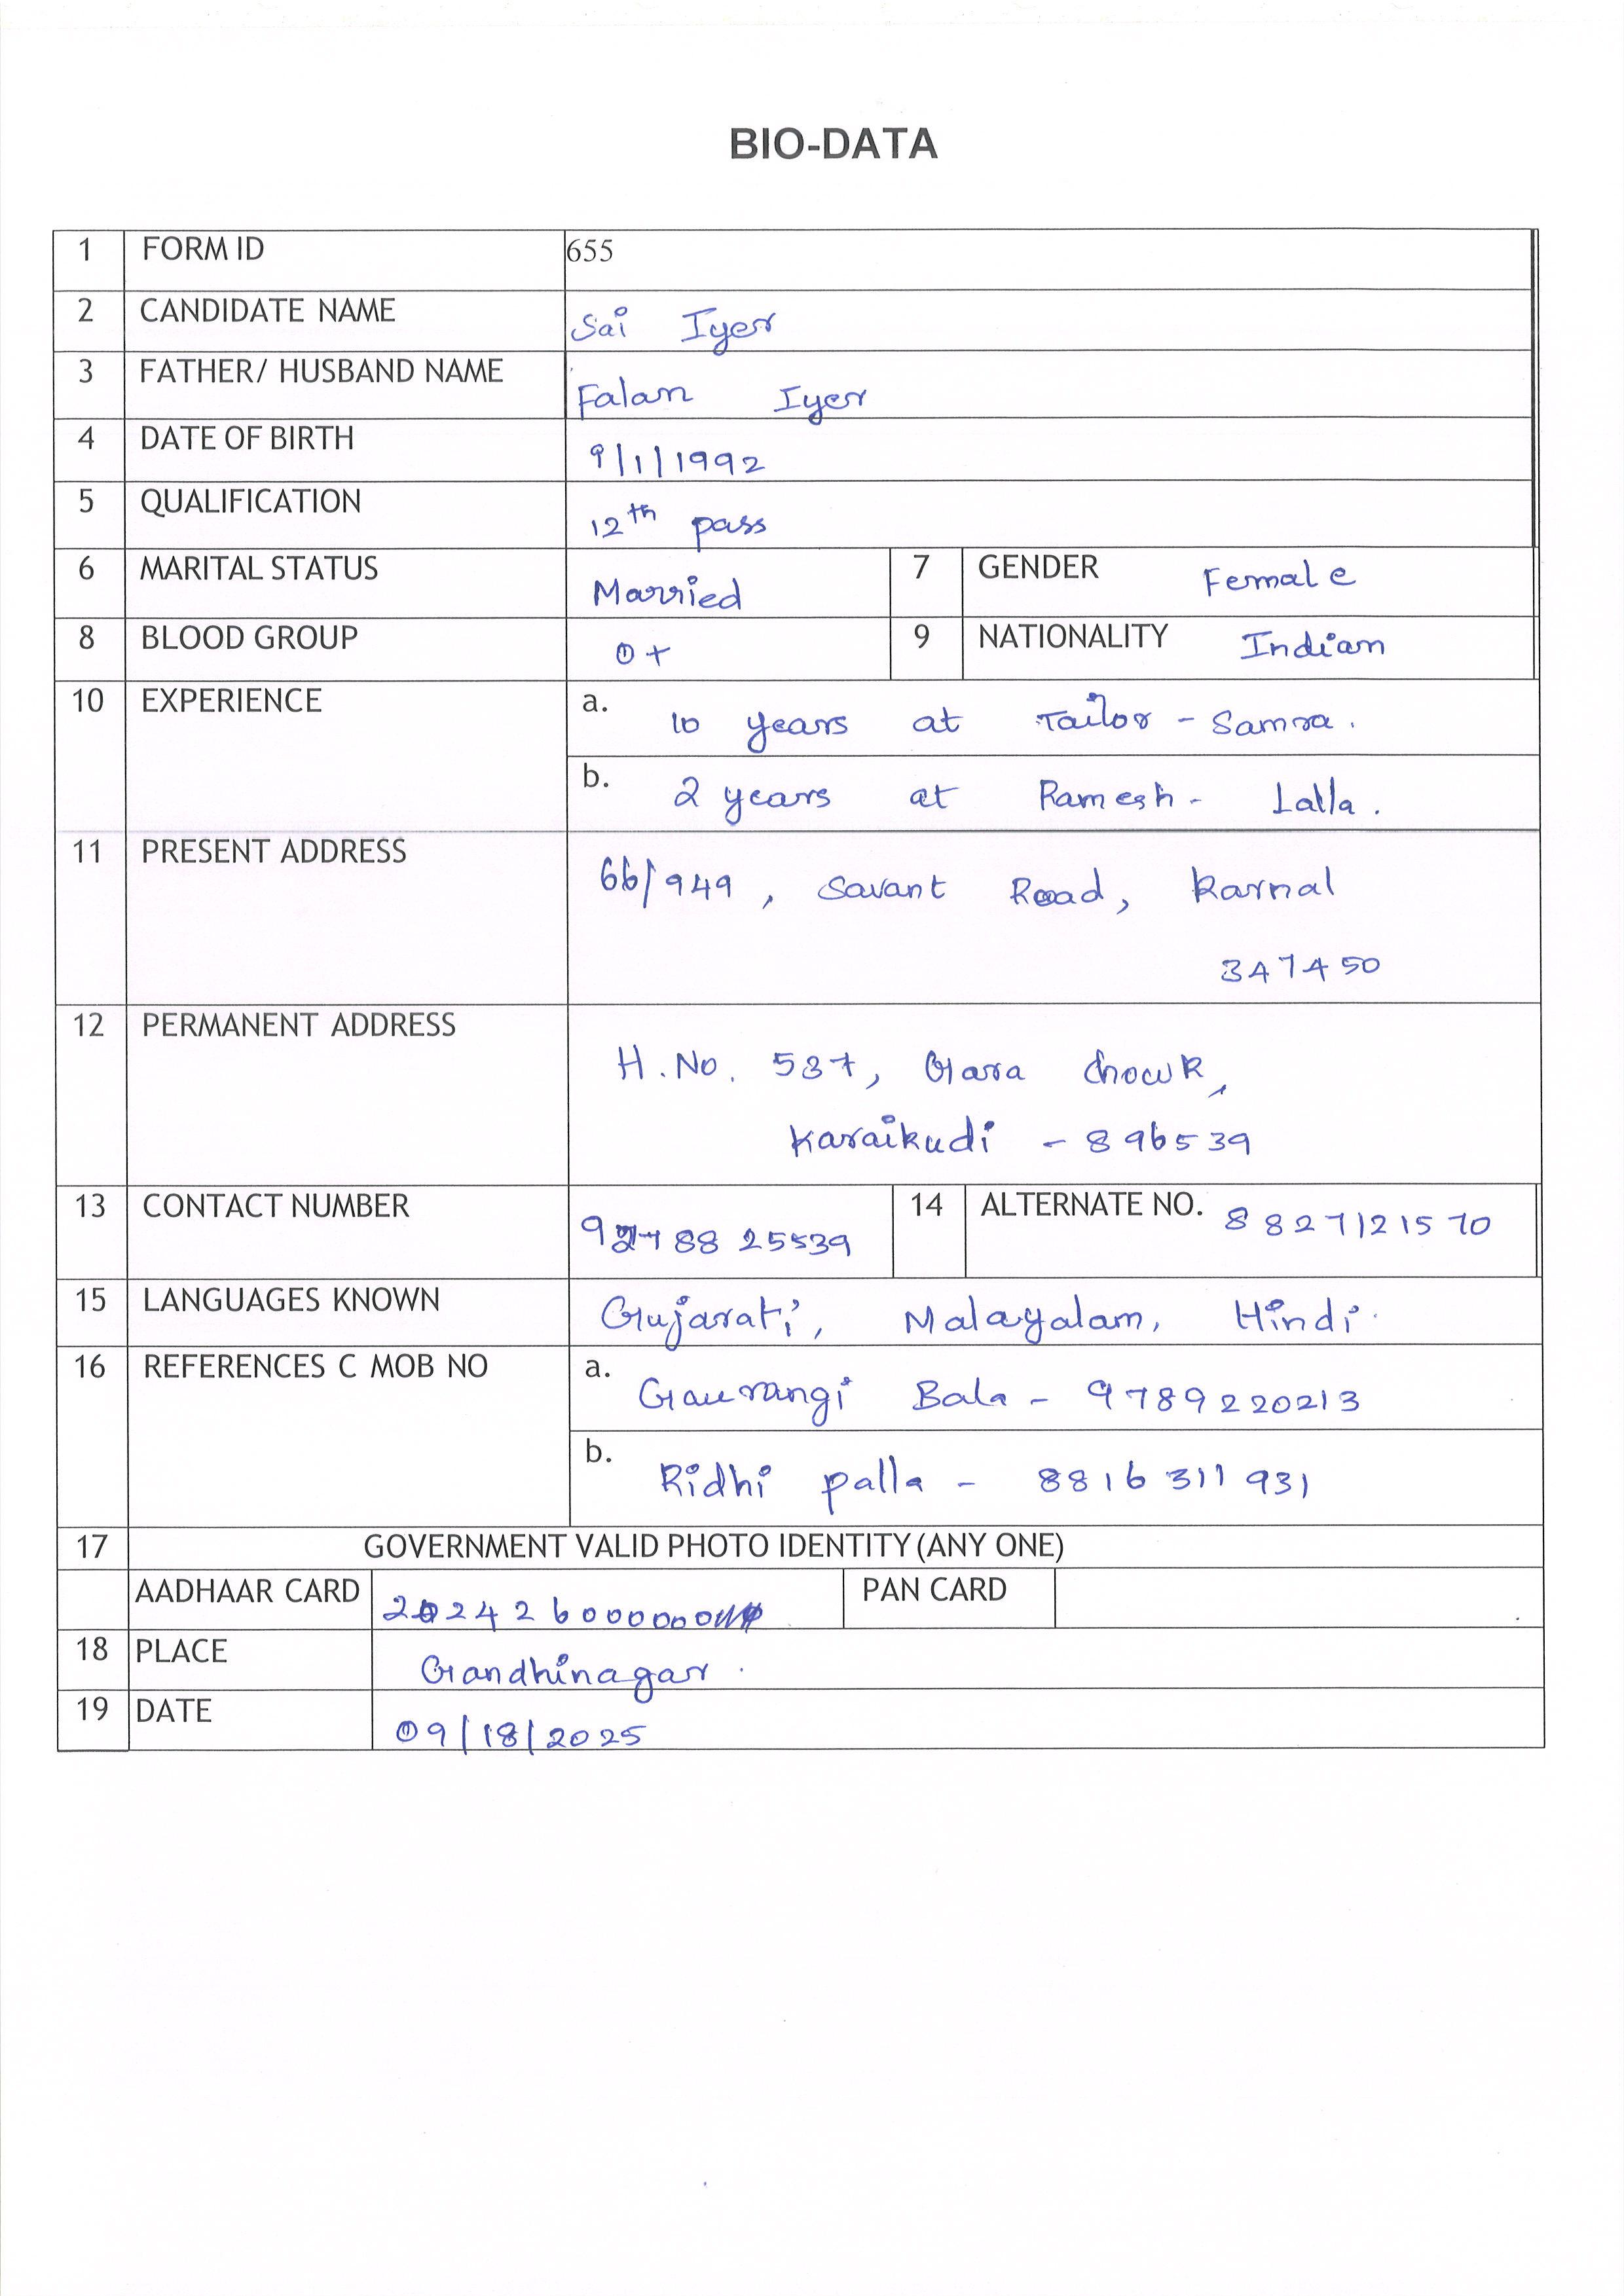 BIO-DATA
1 FORM ID 655
2 CANDIDATE NAME Sai Iyer
3 FATHER/ HUSBAND NAME Falan Iyer
4 DATE OF BIRTH 9/1/1992
5 QUALIFICATION 12th pass
6 MARITAL STATUS Married 7 GENDER Female
8 BLOOD GROUP O+ 9 NATIONALITY Indian
10 EXPERIENCE a. 10 years at Tailor - Samra.
b. 2 years at Ramesh - Lalla.
11 PRESENT ADDRESS 66/949, Savant Road, Karnal
347450
12 PERMANENT ADDRESS
H.No. 537, Gara Chowk,
Karaikudi - 896539
13 CONTACT NUMBER 88 25539 14 ALTERNATE NO. 8827121570
15 LANGUAGES KNOWN Gujarati, Malayalam, Hindi.
16 REFERENCES C MOB NO a. Gaurangi Bala - 9789220213
b. Ridhi palla - 8816311931
17 GOVERNMENT VALID PHOTO IDENTITY (ANY ONE)
AADHAAR CARD PAN CARD
18 PLACE Gandhinagar.
19 DATE 09/18/2025